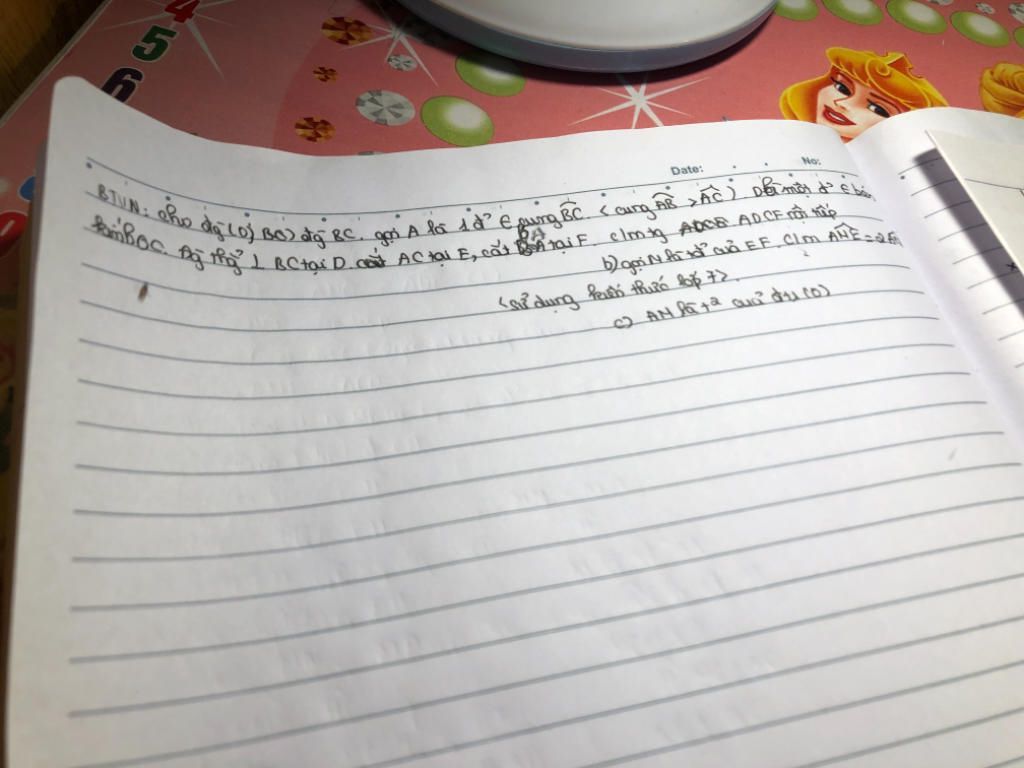 4
5
6
Date: No:
BTVN: cho đg (O) BC, đg BC. gọi A là 1 đ' ∈ cung BC. <cung AB > AC). D là một đ' ∈ bán
kính OC. Đg thg ⊥ BC tại D. cắt AC tại E, cắt BA tại F. c/m tg ADCF nội tiếp
b) gọi N là tđ' của EF. C/m
<sử dụng kiến thức lớp 7>.
c) AN là t² của đtr (O)